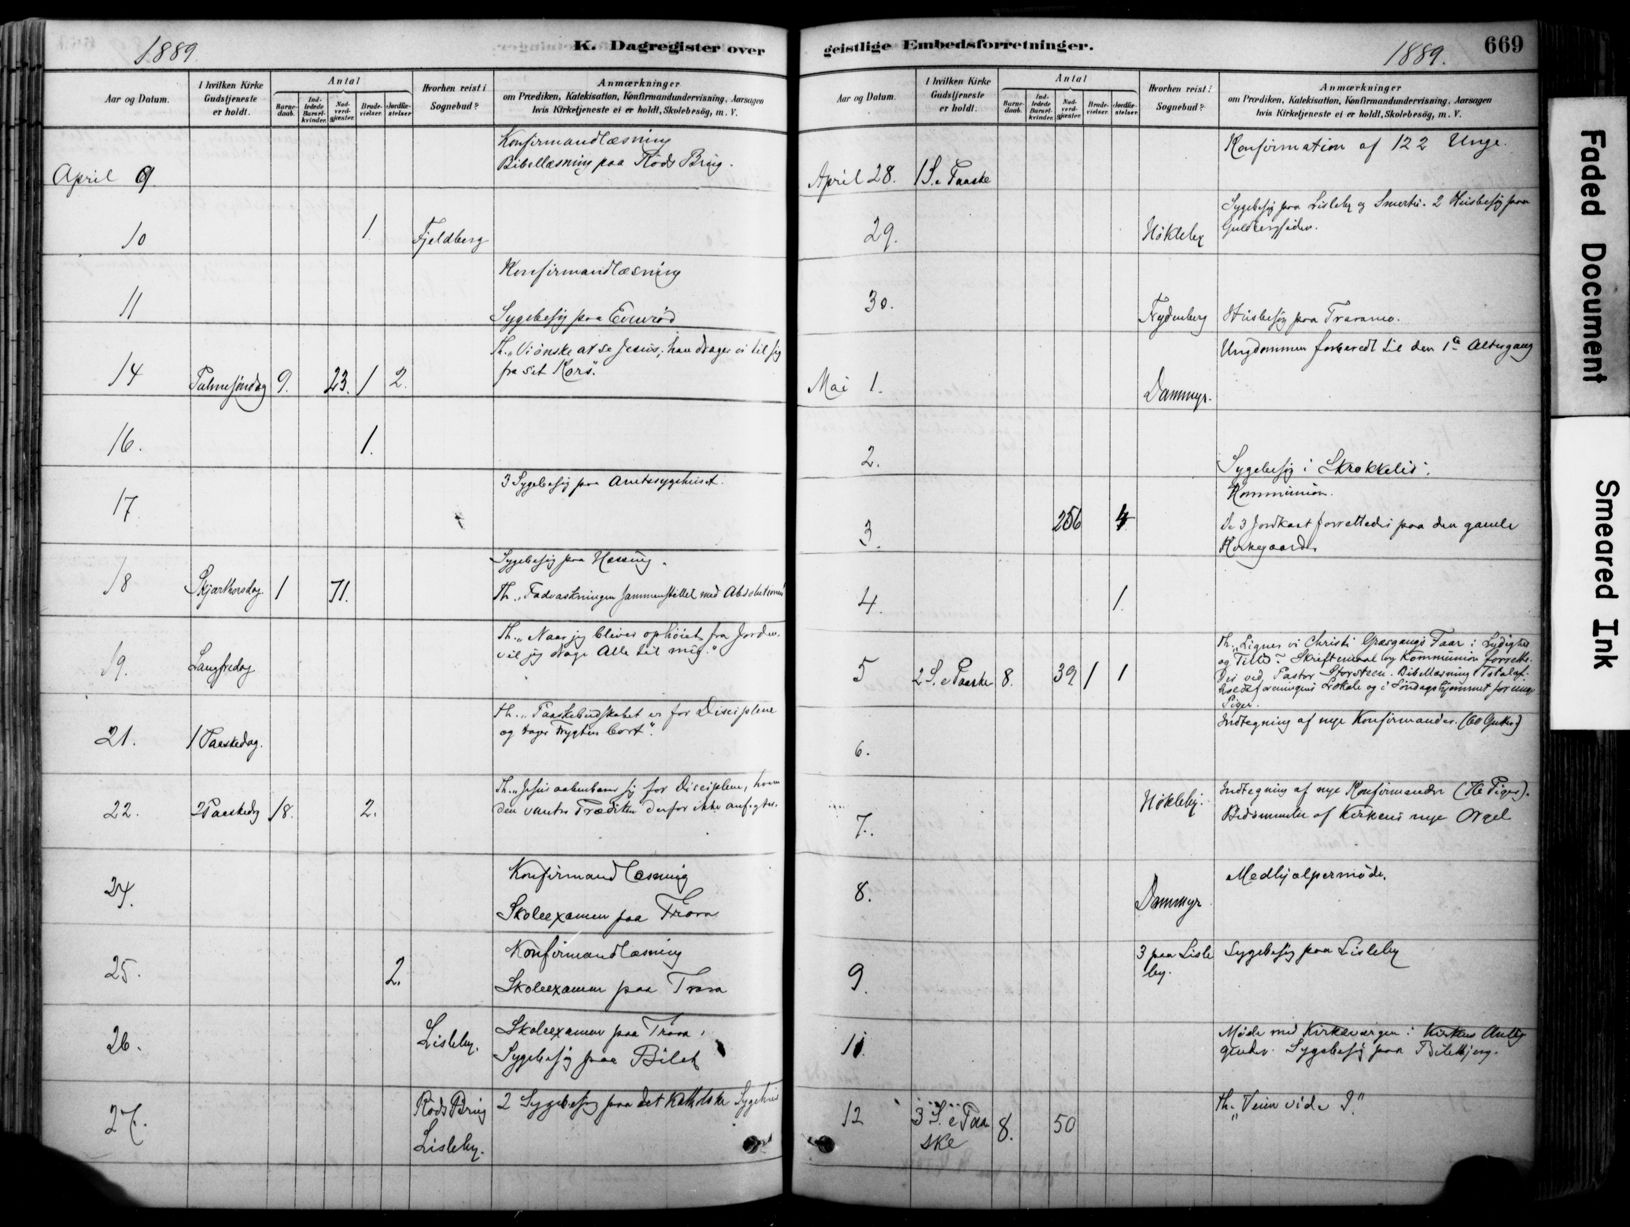 1889.
K. Dagregister over
Aar og Datum.
I hvilken Kirke
Gudstjeneste
er holdt.
Antal
Barne-
daab.
Ind-
ledede
Barsel-
kvinder.
Nad-
verd-
gjæster.
Brude-
vielser.
Jordfæ-
stelser.
Hvorhen reist i
Sognebud?
Anmærkninger
om Prædiken, Katekisation, Konfirmandundervisning, Aarsagen
hvis Kirketjeneste ei er holdt, Skolebesøg, m. V.
April 9.
Konfirmandlæsning
Bibellæsning paa Røds Brug.
10
1
Fjeldberg
11
Konfirmandlæsning
Sygebesøg paa
14
Palmesøndag
9.
23.
1
2.
Th. "Vi ønske at se Jesus, han drager os til sig
fra sit Kors".
16.
1.
17
3 Sygebesøg paa Amtssygehuset.
18
Skjærthorsdag
1
71.
Sygebesøg paa
Th. "Fodvaskningen sammenstillet med Absolutionen
19.
Langfredag
Th. "Naar jeg bliver ophøiet fra Jorden
vil jeg drage Alle til mig."
21.
1 Paaskedag.
Th. "Paaskebudskabet er for Disciplene
og tager Frygten bort".
22.
2 Paaskedag
18.
2.
Th. "Jesus aabenbarer sig for Disciplene,
den vantro derfor ikke
24.
Konfirmandlæsning
Skoleexamen paa Trara
25.
2.
Konfirmandlæsning
Skoleexamen paa Trara
26.
Lisleby.
Skoleexamen paa Trara,
Sygebesøg paa Bilet
27.
Røds Brug
Lisleby.
2 Sygebesøg paa det katholske Sygehus
geistlige Embedsforretninger.
1889.
669
Aar og Datum.
I hvilken Kirke
Gudstjeneste
er holdt.
Antal
Barne-
daab.
Ind-
ledede
Barsel-
kvinder.
Nad-
verd-
gjæster.
Brude-
vielser.
Jordfæ-
stelser.
Hvorhen reist i
Sognebud?
Anmærkninger
om Prædiken, Katekisation, Konfirmandundervisning, Aarsagen
hvis Kirketjeneste ei er holdt, Skolebesøg, m. V.
April 28.
1 S. e Paaske
Konfirmation af 122 Unge.
29.
Nøkleby
Sygebesøg paa Lisleby og Smertu. 2 Husbesøg paa
Guldbergsiden.
30.
Nydenberg
Husbesøg paa Traramo.
Mai 1.
Dammyr.
Ungdommen forberedt til den 1ste Altergang
2.
Sygebesøg i Skrokkelid.
3.
256
4
Kommunion.
De 3 Jordkast forrettedes paa den gamle
Kirkegaard.
4.
1.
5
2 S. e Paaske
8.
39
1
1
Th. "Ligner vi Christi Græsgangs Faar i Lydighed
og Tillid". Skriftemaal og Kommunion forrett-
des ved Pastor Storsteen. Bibellæsning i Totalaf-
holdsforeningens Lokale og i Søndagshjemmet for unge
Piger.
6.
Indtegning af nye Konfirmander. (60 Gutter)
7.
Nøkleby.
Indtegning af nye Konfirmander (76 Piger).
Bedømmelse af Kirkens nye Orgel
8.
Dammyr
Medhjælpermøde.
9.
3 paa Lisle
by.
Sygebesøg paa Lisleby
11.
Møde med Kirkeværgen i Kirkens Anlig-
gender. Sygebesøg paa Biletbjerg.
12
3 S. e Paa
ske
8.
50
Th. "Veien vide I".
Faded Document
Smeared Ink